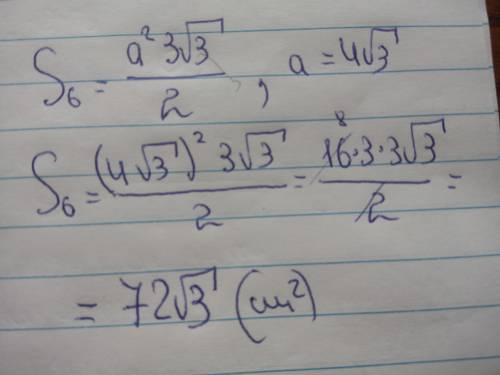 S₆ = a² 3√3 / 2 , a = 4√3
S₆ = (4√3)² 3√3 / 2 = 8 16·3·3√3 / 2 =
= 72√3 (см²)